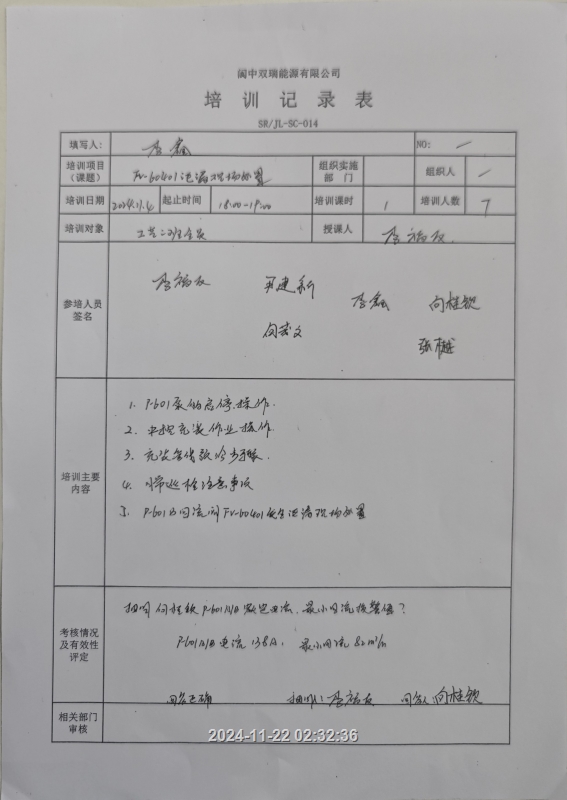 阆中双瑞能源有限公司
培训记录表
SR/JL-SC-014
填写人： 李鑫 NO: /
培训项目（课题） FV-60401泄漏现场处置 组织实施部门 组织人 /
培训日期 2024.11.4 起止时间 18:00-19:00 培训课时 1 培训人数 7
培训对象 工艺二班全员 授课人 李福友
参培人员签名
李福友 建新 李鑫 向桂钦
向武文 张越
培训主要内容
1. P-601泵的启停操作.
2. 充装作业操作
3. 充装
4. 日常巡检注意事项
5. P-601的回流阀FV-60401发生泄漏现场处置
考核情况及有效性评定
抽问向桂钦P-601A/B额定电流、最小回流报警值？
P-601A/B电流138A， 最小回流82m³/h
回答正确 抽问人：李福友 回答人：向桂钦
相关部门审核
2024-11-22 02:32:36